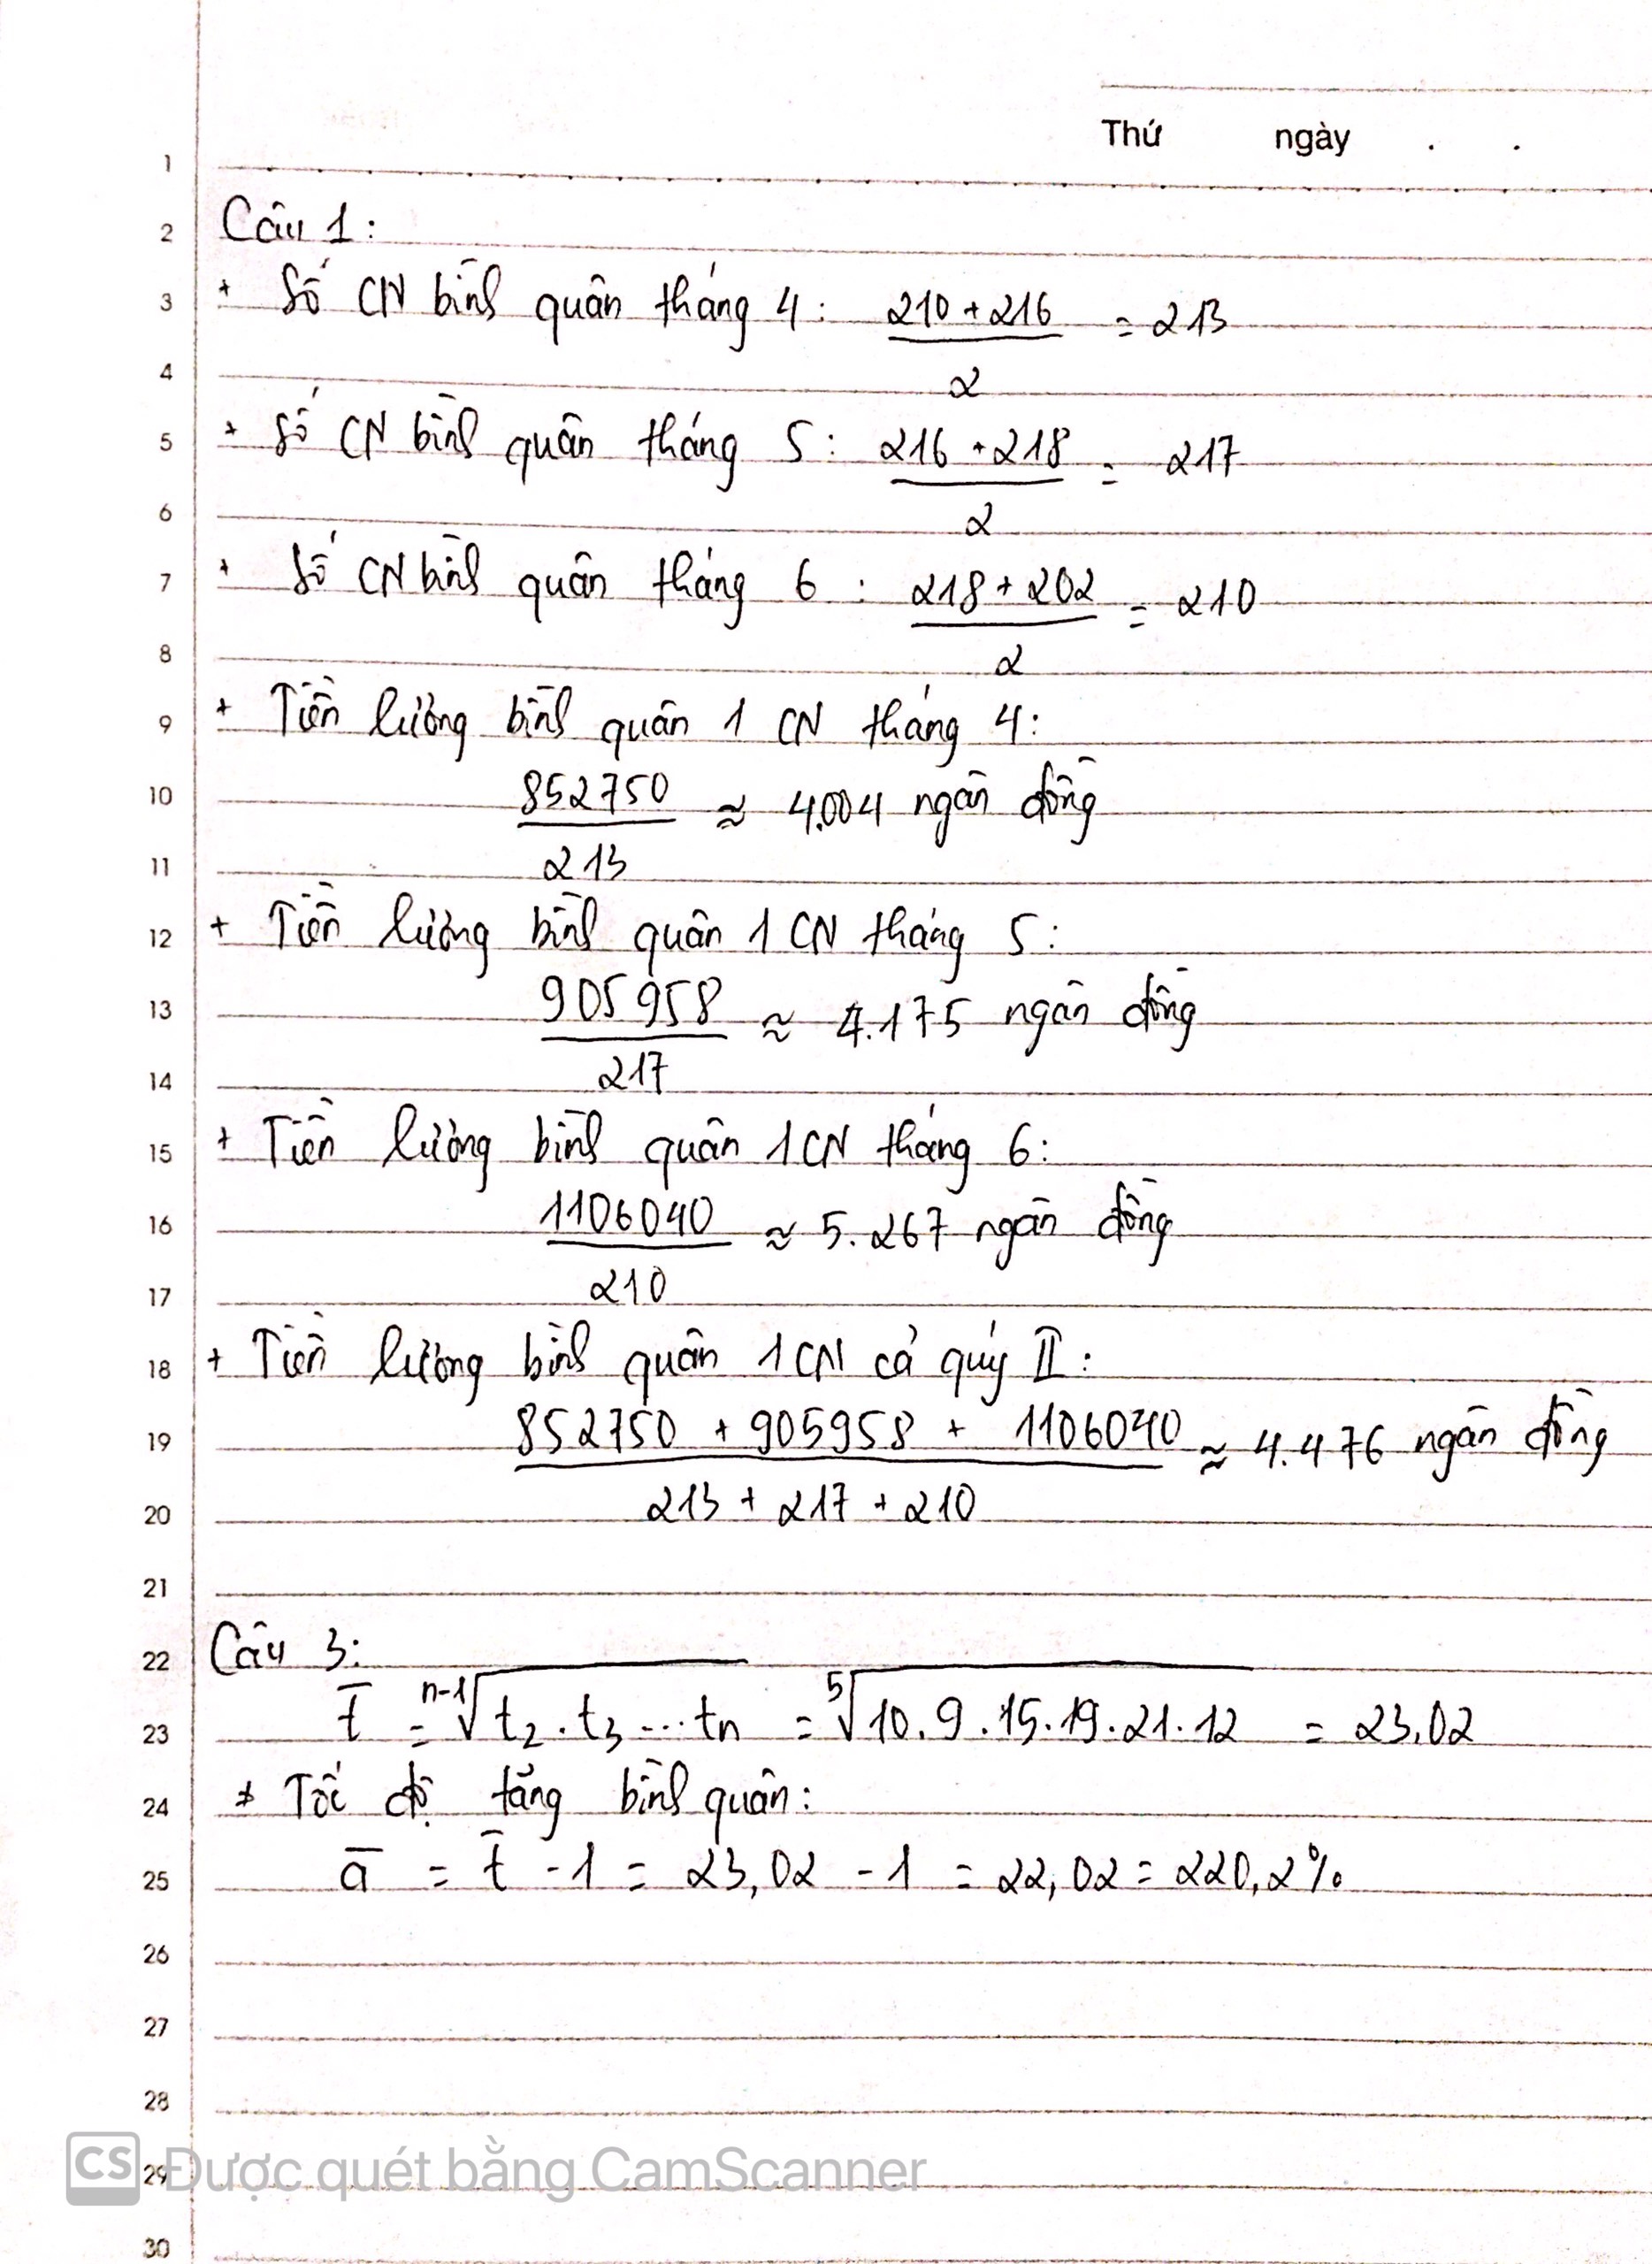 Thứ ngày . .
1
2 Câu 1:
3 + Số CN bình quân tháng 4: 210 + 216 = 213
4 2
5 + Số CN bình quân tháng 5: 216 + 218 = 217
6 2
7 + Số CN bình quân tháng 6: 218 + 202 = 210
8 2
9 + Tiền lương bình quân 1 CN tháng 4:
10 852750 ≈ 4.004 ngàn đồng
11 213
12 + Tiền lương bình quân 1 CN tháng 5:
13 905958 ≈ 4.175 ngàn đồng
14 217
15 + Tiền lương bình quân 1 CN tháng 6:
16 1106040 ≈ 5.267 ngàn đồng
17 210
18 + Tiền lương bình quân 1 CN cả quý II:
19 852750 + 905958 + 1106040 ≈ 4.476 ngàn đồng
20 213 + 217 + 210
21
22 Câu 3:
23 t̄ = ⁿ⁻¹√t₂.t₃...tn = ⁵√10.9.15.19.21.12 = 23,02
24 * Tốc độ tăng bình quân:
25 ā = t̄ - 1 = 23,02 - 1 = 22,02 = 220,2%
26
27
28
29
CS Được quét bằng CamScanner
30